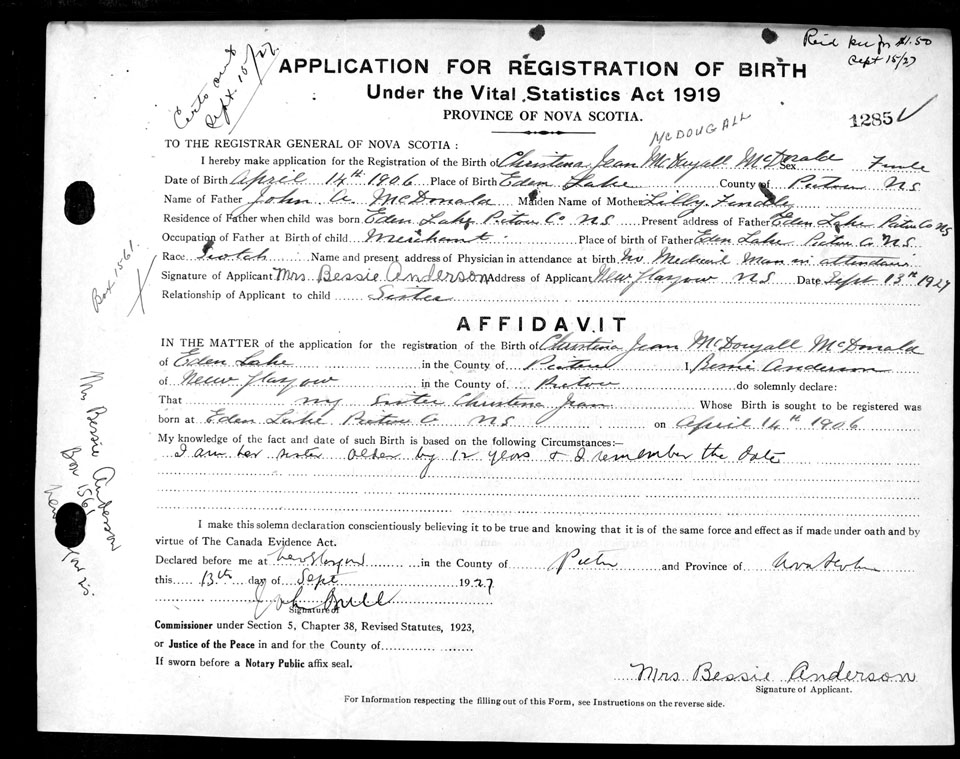 Certs out
Sept. 15/27.
Sept 15/27
APPLICATION FOR REGISTRATION OF BIRTH
Under the Vital Statistics Act 1919
PROVINCE OF NOVA SCOTIA.
1285
MCDOUGALL
TO THE REGISTRAR GENERAL OF NOVA SCOTIA :
I hereby make application for the Registration of the Birth of Christena Jean McDougall McDonald Sex Female
Date of Birth April 14th 1906 Place of Birth Eden Lake County of Pictou NS
Name of Father John A. McDonald Maiden Name of Mother Libby Findley
Residence of Father when child was born Eden Lake Pictou Co NS Present address of Father Eden Lake Pictou Co NS
Occupation of Father at Birth of child Merchant Place of birth of Father Eden Lake Pictou Co N.S.
Race Scotch Name and present address of Physician in attendance at birth No Medical Man in attendance
Signature of Applicant Mrs Bessie Anderson Address of Applicant New Glasgow NS Date Sept 13th 1927
Relationship of Applicant to child Sister
AFFIDAVIT
IN THE MATTER of the application for the registration of the Birth of Christena Jean McDougall McDonald
of Eden Lake in the County of Pictou I Bessie Anderson
of New Glasgow in the County of Pictou do solemnly declare:
That my Sister Christena Jean Whose Birth is sought to be registered was
born at Eden Lake Pictou Co NS on April 14th 1906
My knowledge of the fact and date of such Birth is based on the following Circumstances:—
I am her sister older by 12 years & I remember the date
I make this solemn declaration conscientiously believing it to be true and knowing that it is of the same force and effect as if made under oath and by
virtue of The Canada Evidence Act.
Declared before me at New Glasgow in the County of Pictou and Province of Nova Scotia
this 13th day of Sept 1927
Signature of
Commissioner under Section 5, Chapter 38, Revised Statutes, 1923,
or Justice of the Peace in and for the County of
If sworn before a Notary Public affix seal.
Mrs Bessie Anderson
Signature of Applicant.
For Information respecting the filling out of this Form, see Instructions on the reverse side.
Box 1561.
Mrs Bessie Anderson
Box 1561